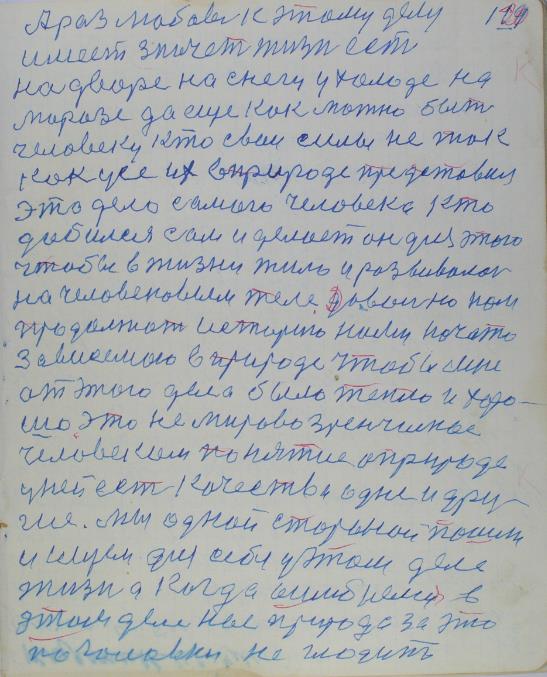 А раз любовь к этому делу 129
имеет значет жизн ест
на дворе на снегу у холоде на
морозе да еще как можно быть
человеку кто свои силы не так
как усе их в природе представил
это дело самого человека кто
добился сам и делает он для этого
чтобы в жизни жило и развивалос
на человековым теле довольно нам
продолжат историю нами начато
зависемою в природе чтобы мне
от этого дела было тепло и хоро-
шо это не мировозренчиское
человеком понятие о природе
у ней ест качества одне и дру-
гие. мы одной стороной пошли
и ищем для себя у этом деле
жизн а когда в
этом деле нас природа за это
по головки не гладить